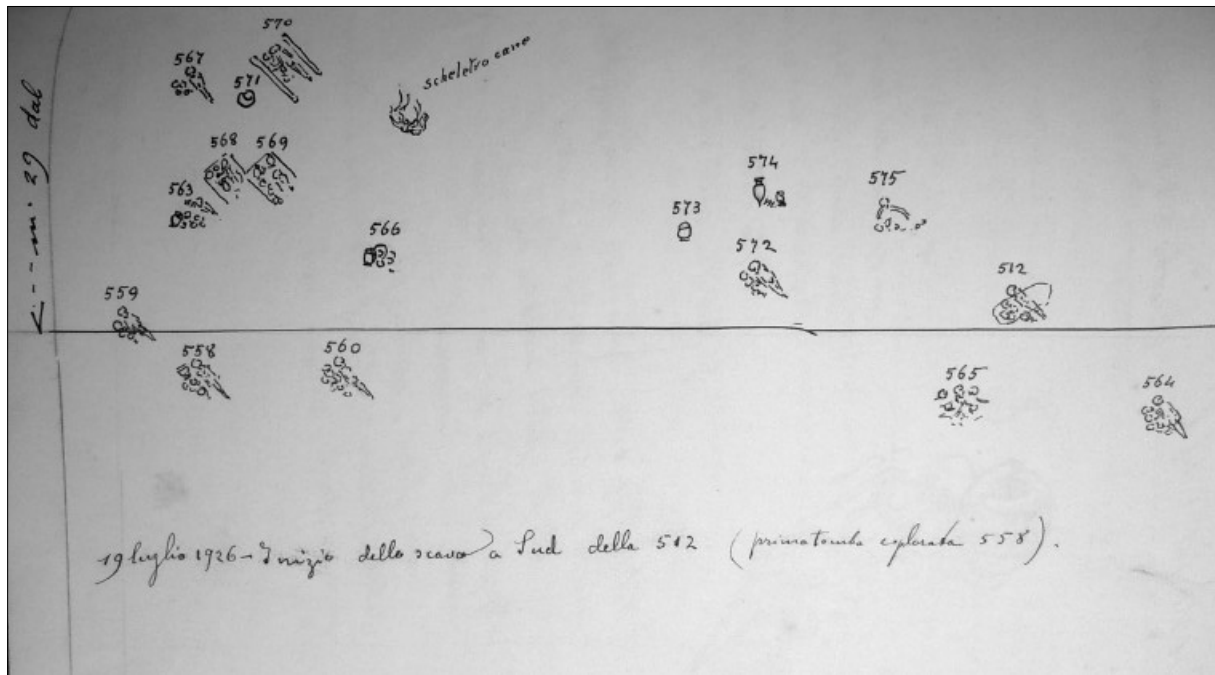 570
567
571
scheletro cane
568 569
563
574
575
573
566
572
512
559
558
560
565
564
m. 29 dal
19 luglio 1926 - Inizio dello scavo a Sud della 512 (prima tomba esplorata 558).